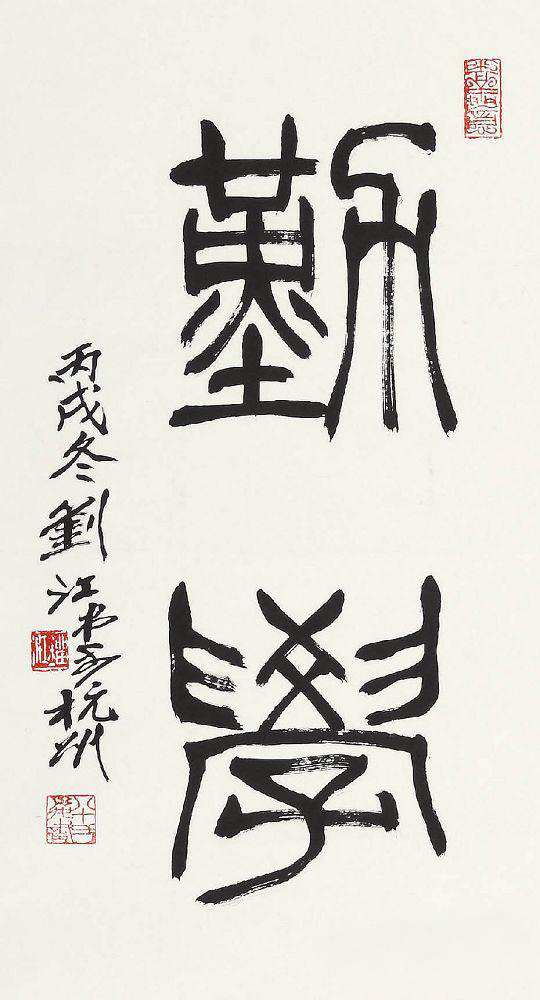 勤學
丙戌冬劉江書於杭州